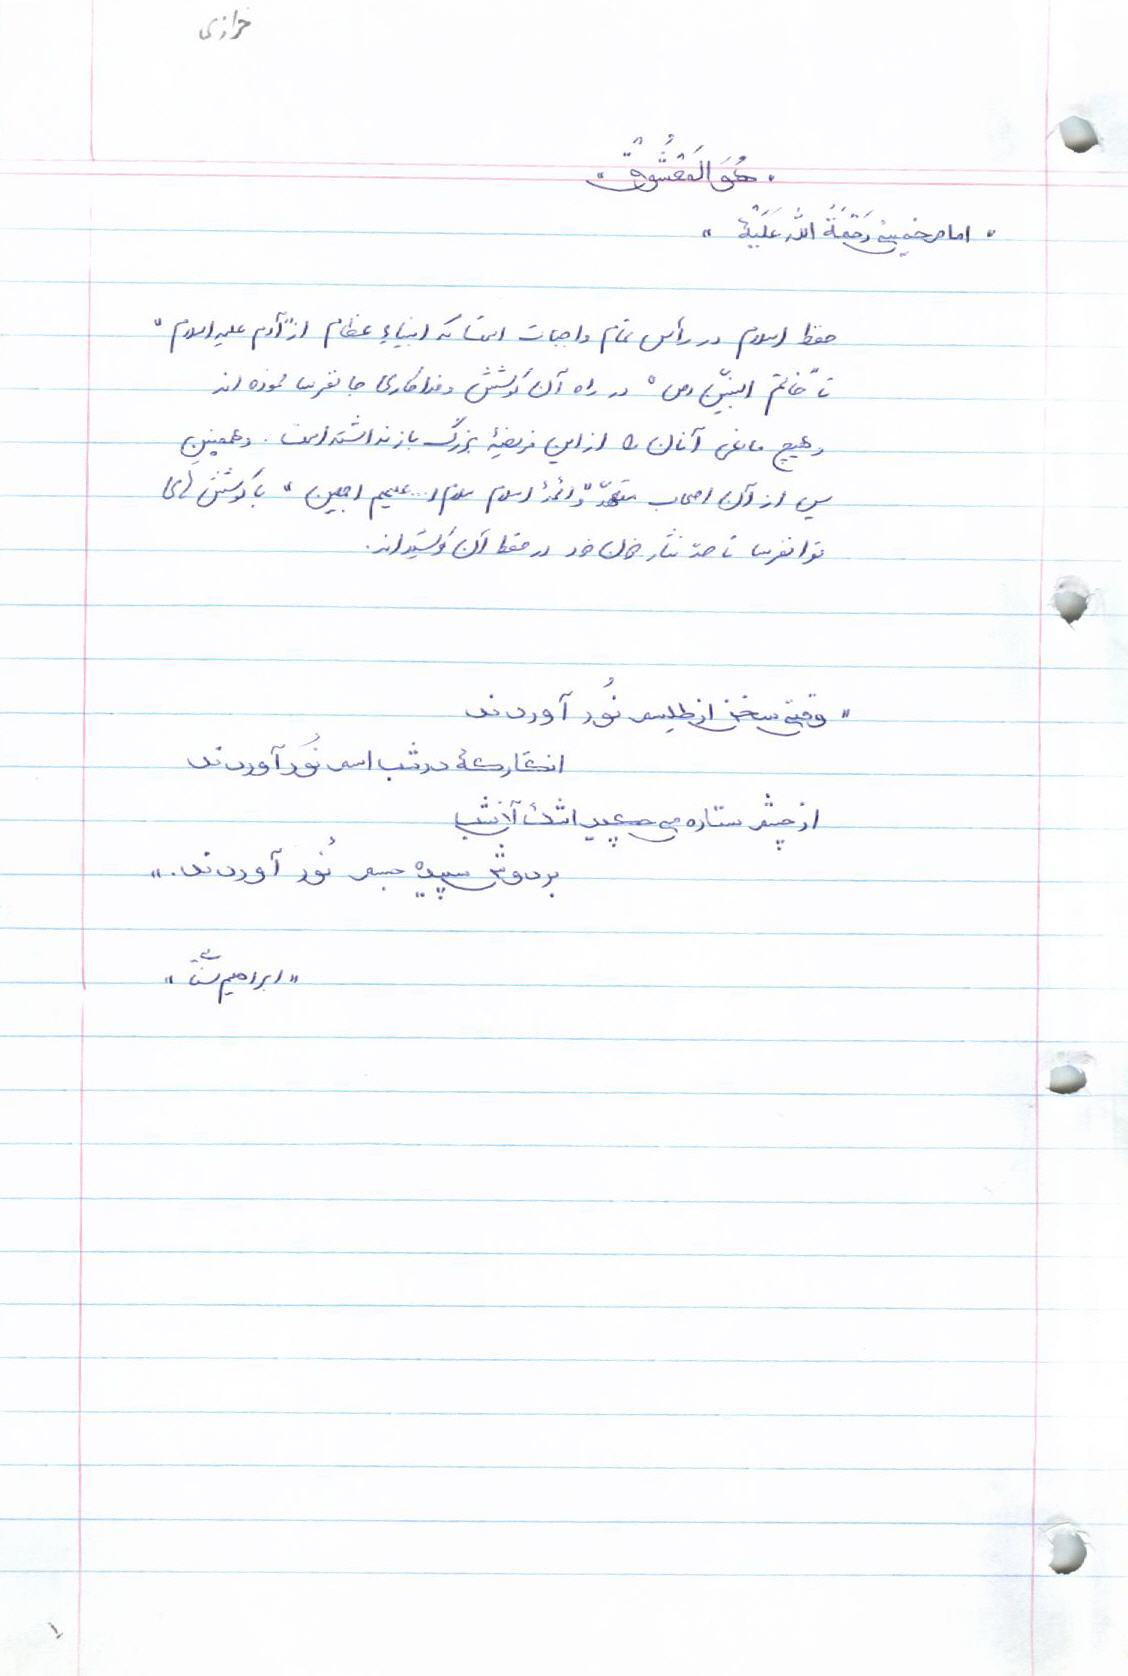 خرازی
« هُوَ المَعْشُوقْ »
« امام خمینی رَحْمَةُ اللهِ عَلَیْهْ »
حفظ اسلام در رأس تمام واجبات است که انبیاءِ عظام از "آدم علیه السلام"
تا "خاتم النبیّین (ص)" در راه آن کوشش و فداکاری جانفرسا نموده اند
و هیچ مانعی آنان را از این فریضۀ بزرگ باز نداشته است. و همچنین
پس از آن اصحاب متعهّد و "ائمۀ اسلام سلام ا... علیهم اجمعین" با کوشش های
توانفرسا تا حدّ نثار خون خود در حفظ آن کوشیده اند.
« وقتی سخن از طلسم نُور آوردند
انگار که در شب اسم نُور آوردند
از چشم ستاره می چکید اشک آنشب
بر دوش سپیده جسم نُور آوردند. »
« ابراهیم »
۱